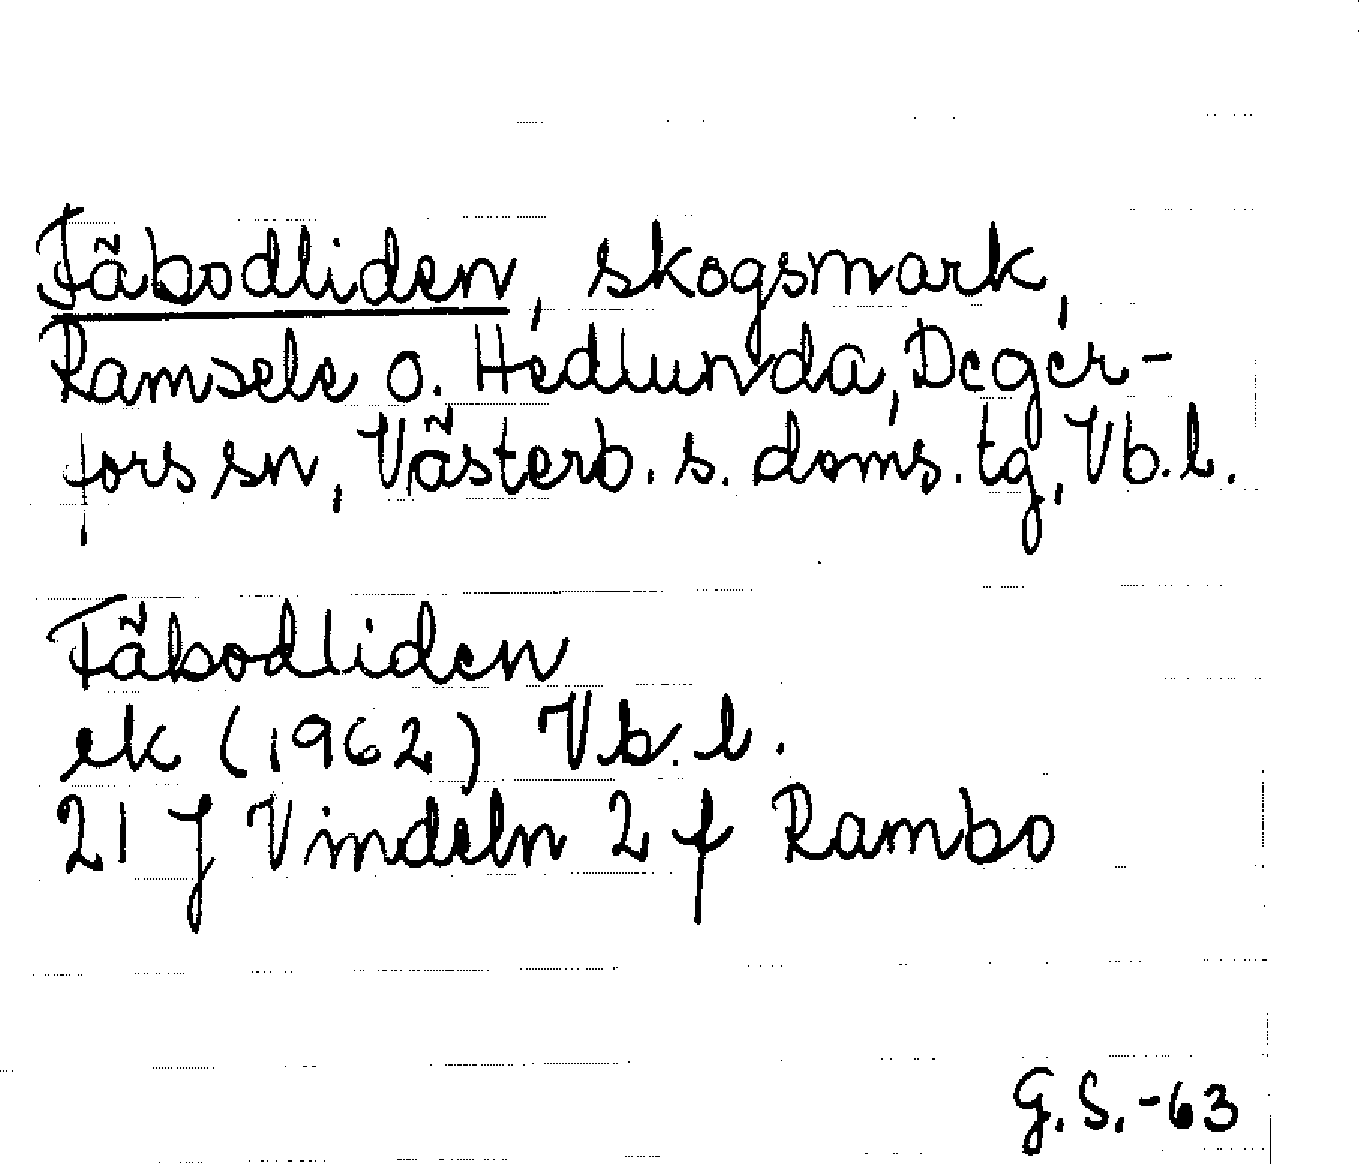 Fäbodliden, skogsmark,
Ramsele o. Hedlunda, Deger-
fors sn, Västerb. s. doms. tg, Vb.l.
Fäbodliden
ek (1962) Vb.l.
21 J Vindeln 2 f Rambo
G.S.-63